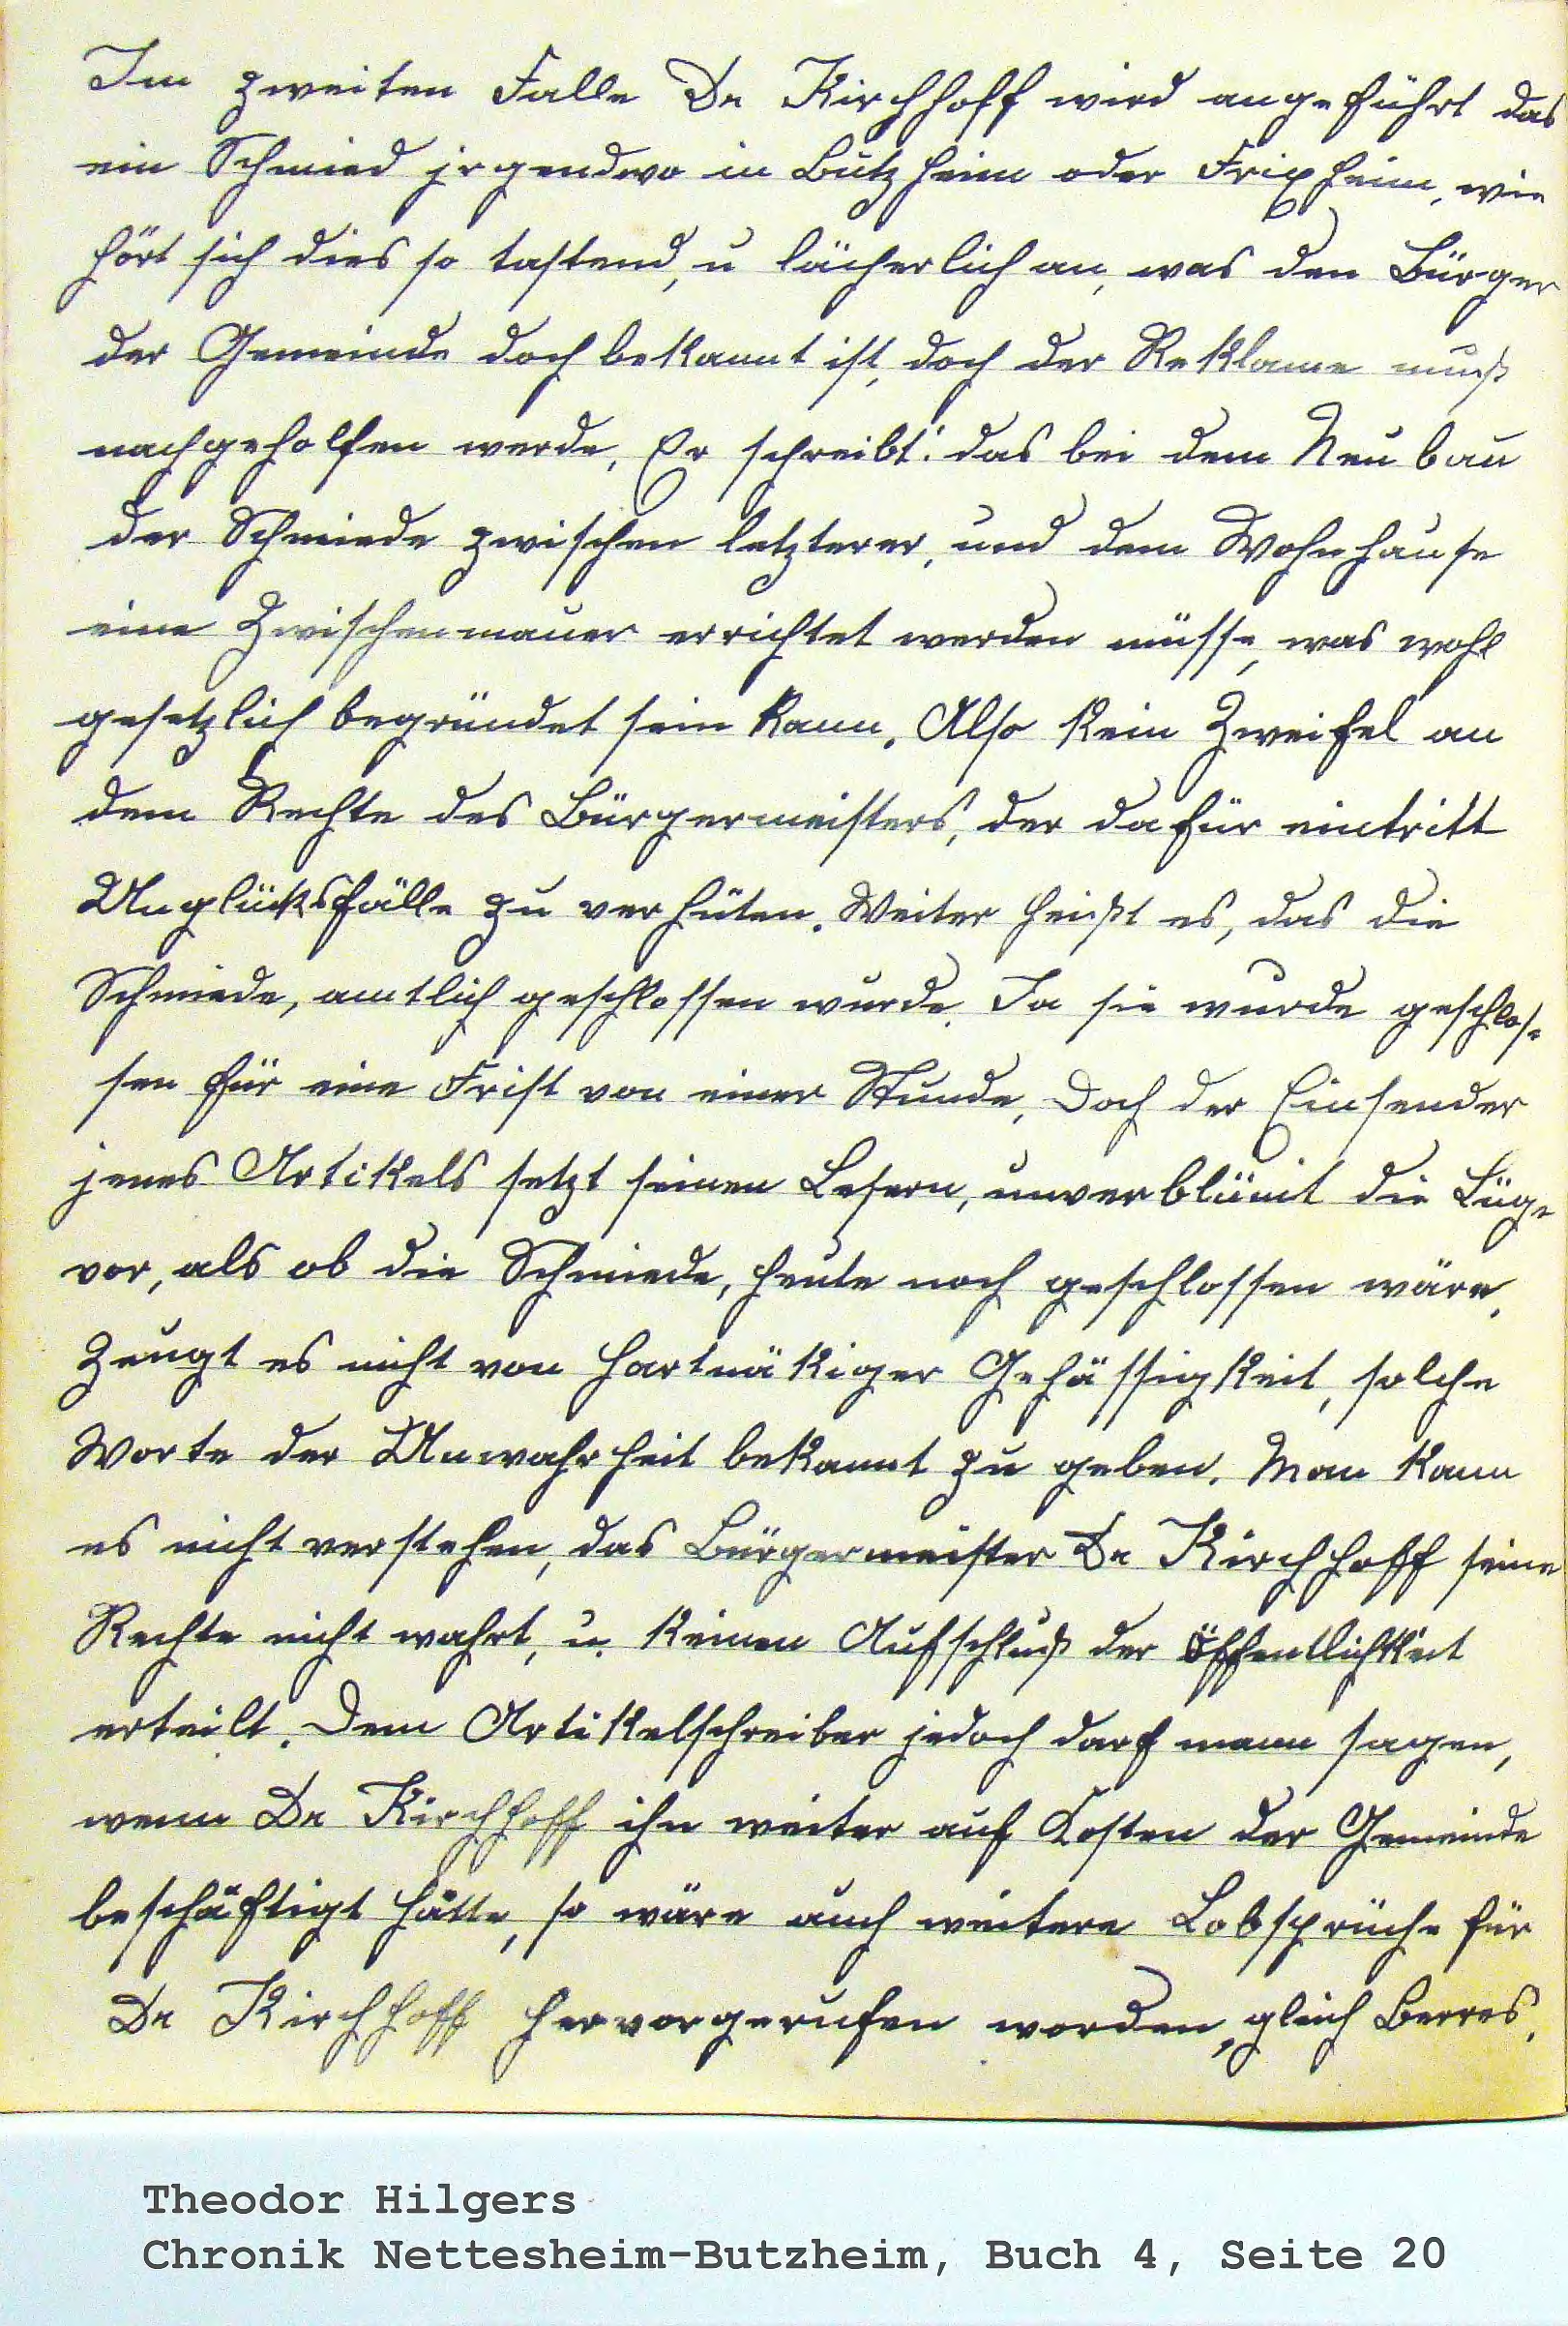 Im zweiten Falle Dr Kirchhoff wird angeführt das
ein Schmied jrgendwo in Butzheim oder Frixheim, wie
hört sich dies so tastend, u lächerlich an, was den Bürger
der Gemeinde doch bekannt ist, doch der Reklame muß
nachgeholfen werde, Er schreibt: das bei dem Neubau
der Schmiede zwischen letzterer, und dem Wohnhause
eine Zwischenmauer errichtet werden müsse, was wohl
gesetzlich begründet sein kann. Also kein Zweifel an
dem Rechte des Bürgermeisters, der dafür eintritt
Unglücksfälle zu verhüten. Weiter heißt es, das die
Schmiede, amtlich geschlossen wurde. Ja sie wurde geschlos=
sen für eine Frist von einer Stunde, Doch der Einsender
jenes Artikels setzt seinen Lesern, unverblümt die Lüge
vor, als ob die Schmiede, heute noch geschlossen wäre.
Zeugt es nicht von hartnäkiger Gehässigkeit, solche
Worte der Unwahrheit bekannt zu geben. Man kann
es nicht verstehen, das Bürgermeister Dr Kirchhoff seine
Rechte nicht wahrt, u. keinen Aufschluß der Öffentlichkeit
erteilt. Dem Artikelschreiber jedoch darf mann sagen,
wenn Dr Kirchhoff ihn weiter auf Kosten der Gemeinde
beschäftigt hätte, so wäre auch weitere Lobsprüche für
Dr Kirchhoff hervorgerufen worden, gleich Berres.
Theodor Hilgers
Chronik Nettesheim-Butzheim, Buch 4, Seite 20